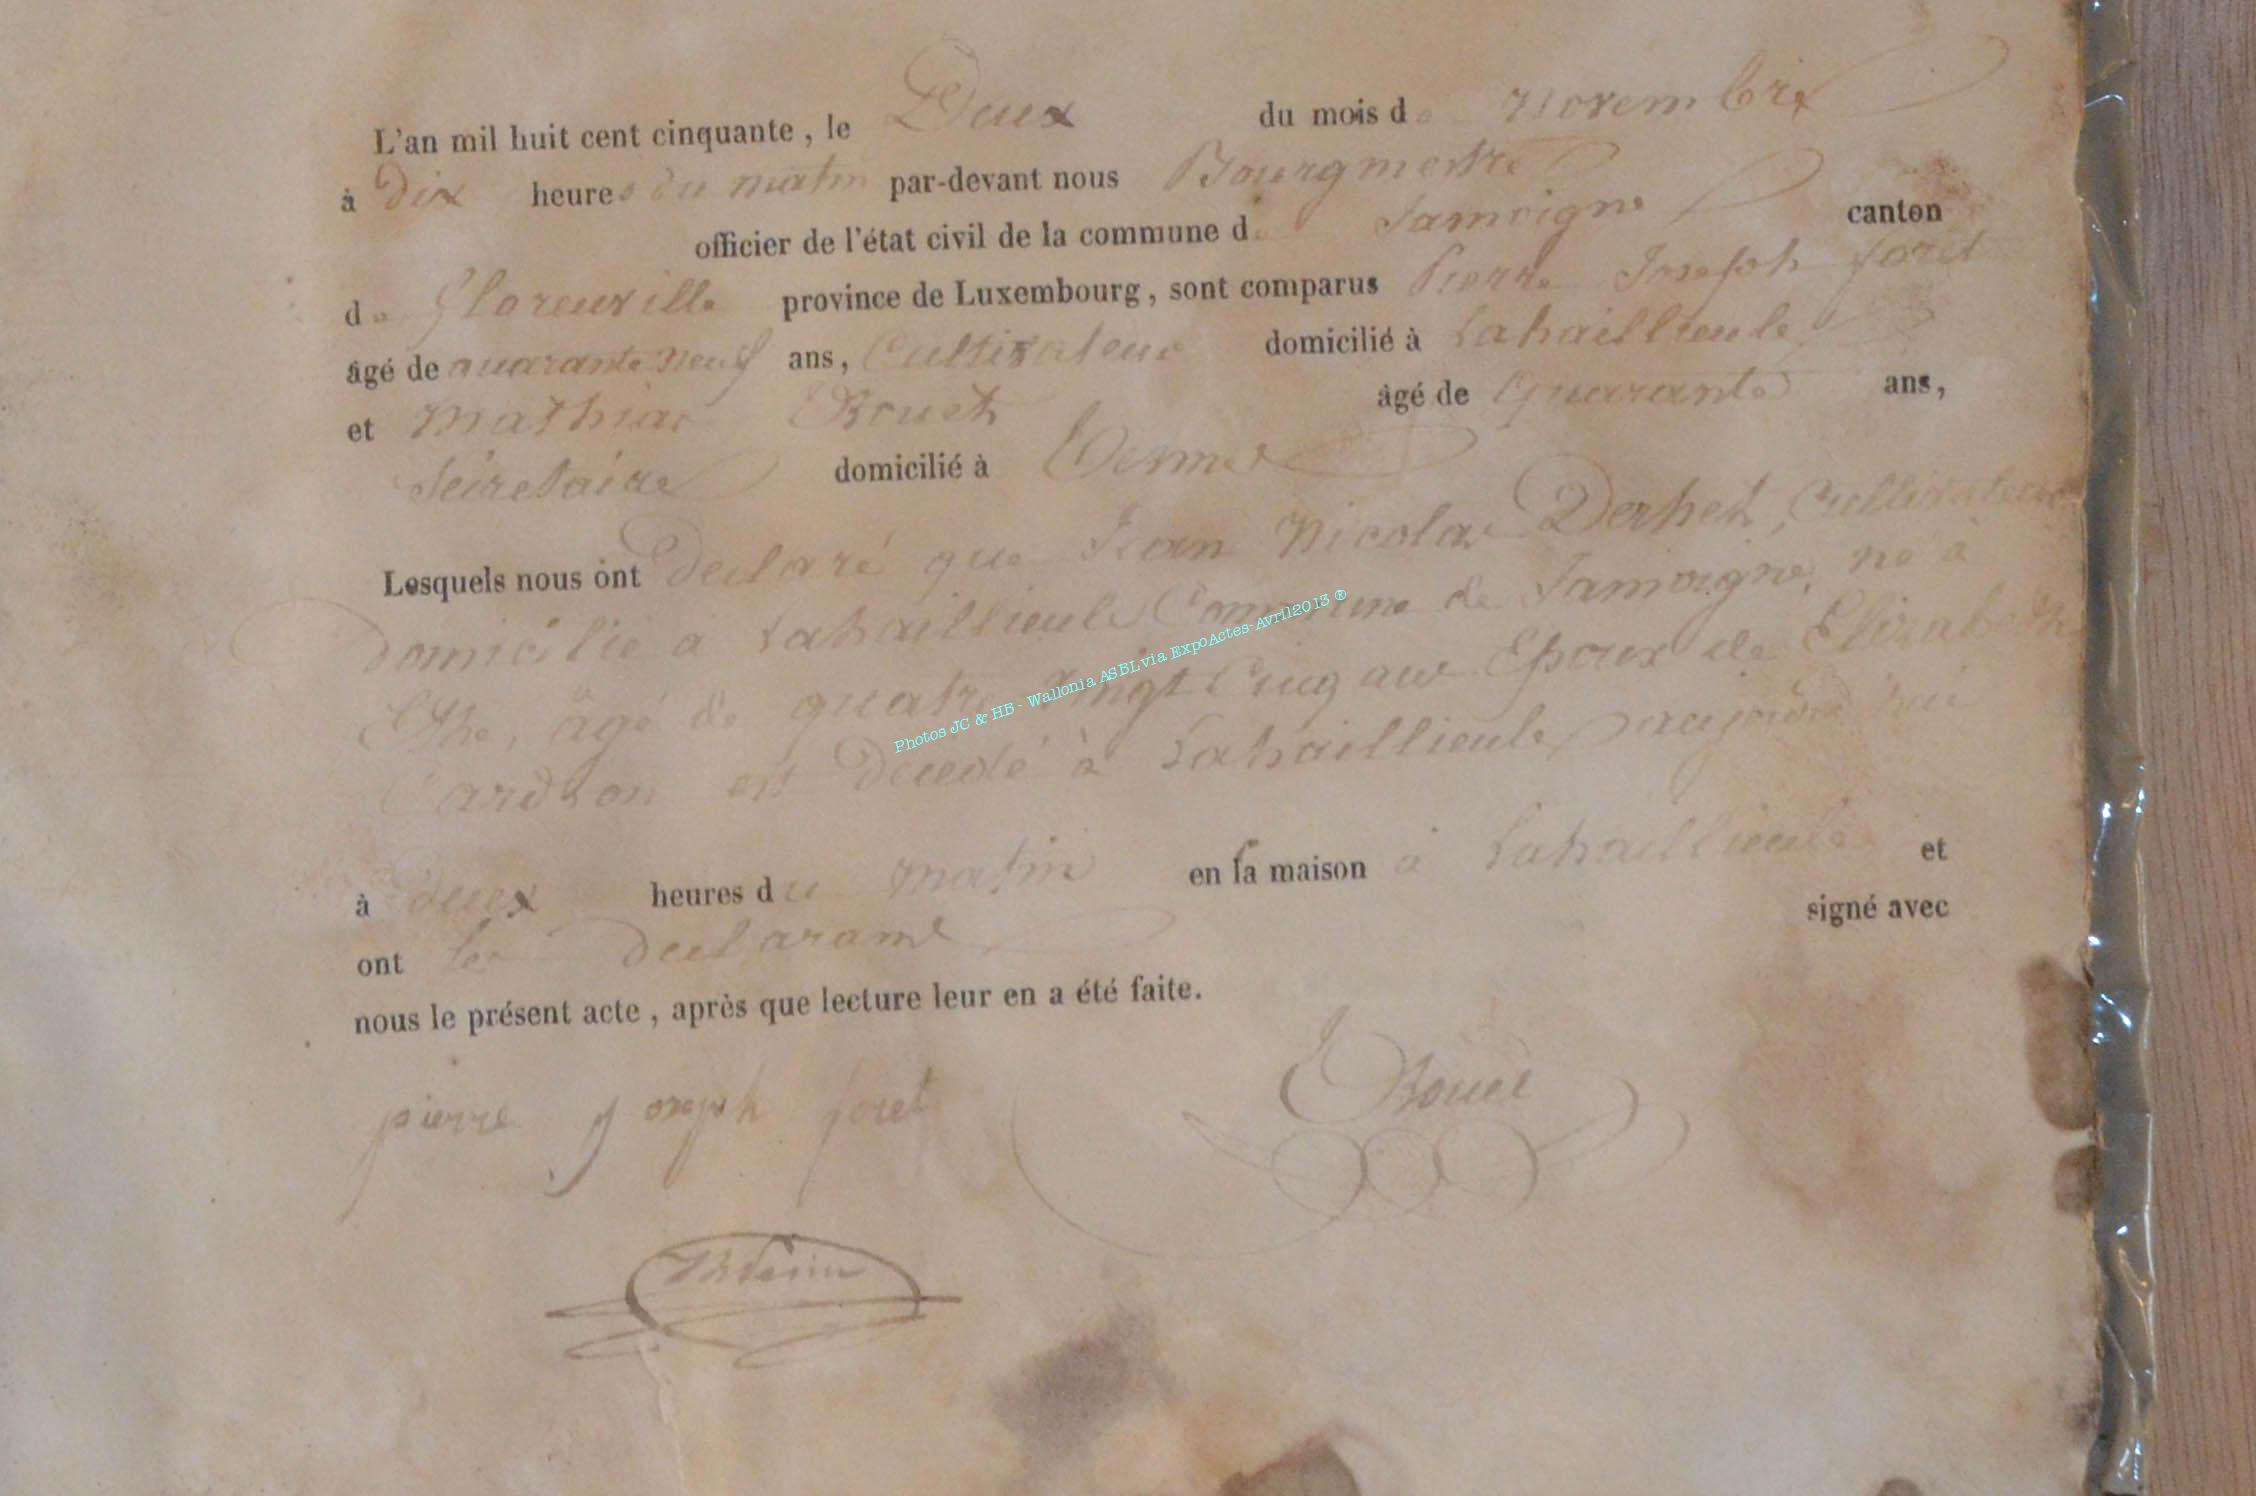 L'an mil huit cent cinquante, le Deux du mois de novembre
à Dix heures du matin par-devant nous Bourgmestre
officier de l'état civil de la commune de Jamoigne canton
de florenville province de Luxembourg, sont comparus Pierre Joseph foret
âgé de quarante neuf ans, Cultivateur domicilié à Lahaillieule
et Mathias Rouet âgé de Quarante ans,
Secretaire domicilié à
Lesquels nous ont declaré que Jean Nicolas Derhet, Cultivateur
Domicilié a Lahaillieule Commune de Jamoigne, né à
Ethe, âgé de quatre vingt Cinq ans Epoux de Elisabeth
est decedé à Lahaillieule aujourd'hui
à deux heures du matin en sa maison à Lahaillieule et
ont les declarants signé avec
nous le présent acte, après que lecture leur en a été faite.
pierre Joseph foret
Rouet
Photos JC & HB - Wallonia ASBL via ExpoActes-Avril2013 ®